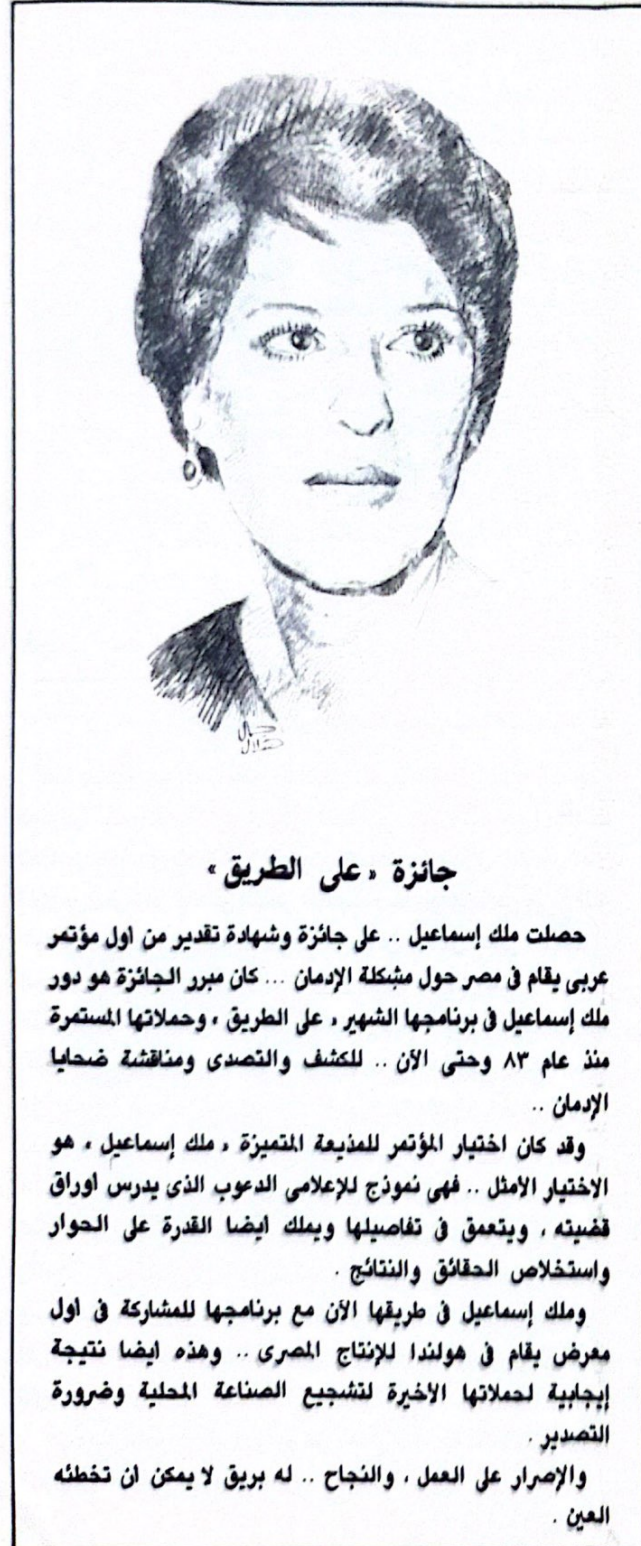 جائزة « على الطريق »
حصلت ملك إسماعيل .. على جائزة وشهادة تقدير من اول مؤتمر
عربى يقام فى مصر حول مشكلة الإدمان ... كان مبرر الجائزة هو دور
ملك إسماعيل فى برنامجها الشهير « على الطريق » وحملاتها المستمرة
منذ عام ٨٣ وحتى الآن .. للكشف والتصدى ومناقشة ضحايا
الإدمان ..
وقد كان اختيار المؤتمر للمذيعة المتميزة « ملك إسماعيل » هو
الاختيار الأمثل .. فهى نموذج للإعلامى الدعوب الذى يدرس اوراق
قضيته ، ويتعمق فى تفاصيلها ويملك ايضا القدرة على الحوار
واستخلاص الحقائق والنتائج .
وملك إسماعيل فى طريقها الآن مع برنامجها للمشاركة فى اول
معرض يقام فى هولندا للإنتاج المصرى .. وهذه ايضا نتيجة
إيجابية لحملاتها الاخيرة لتشجيع الصناعة المحلية وضرورة
التصدير .
والإصرار على العمل ، والنجاح .. له بريق لا يمكن ان تخطئه
العين .